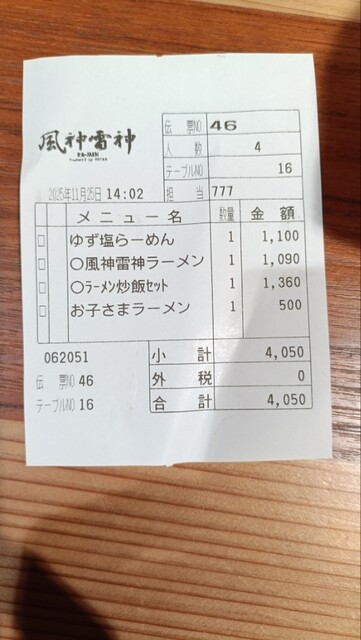 風神雷神
RA-MEN
伝票NO 46
人数 4
テーブルNO 16
2025年11月25日 14:02
担当 777
メニュー名 数量 金額
ゆず塩らーめん 1 1,100
○風神雷神ラーメン 1 1,090
○ラーメン炒飯セット 1 1,360
お子さまラーメン 1 500
062051
小計 4,050
伝票NO 46
外税 0
テーブルNO 16
合計 4,050